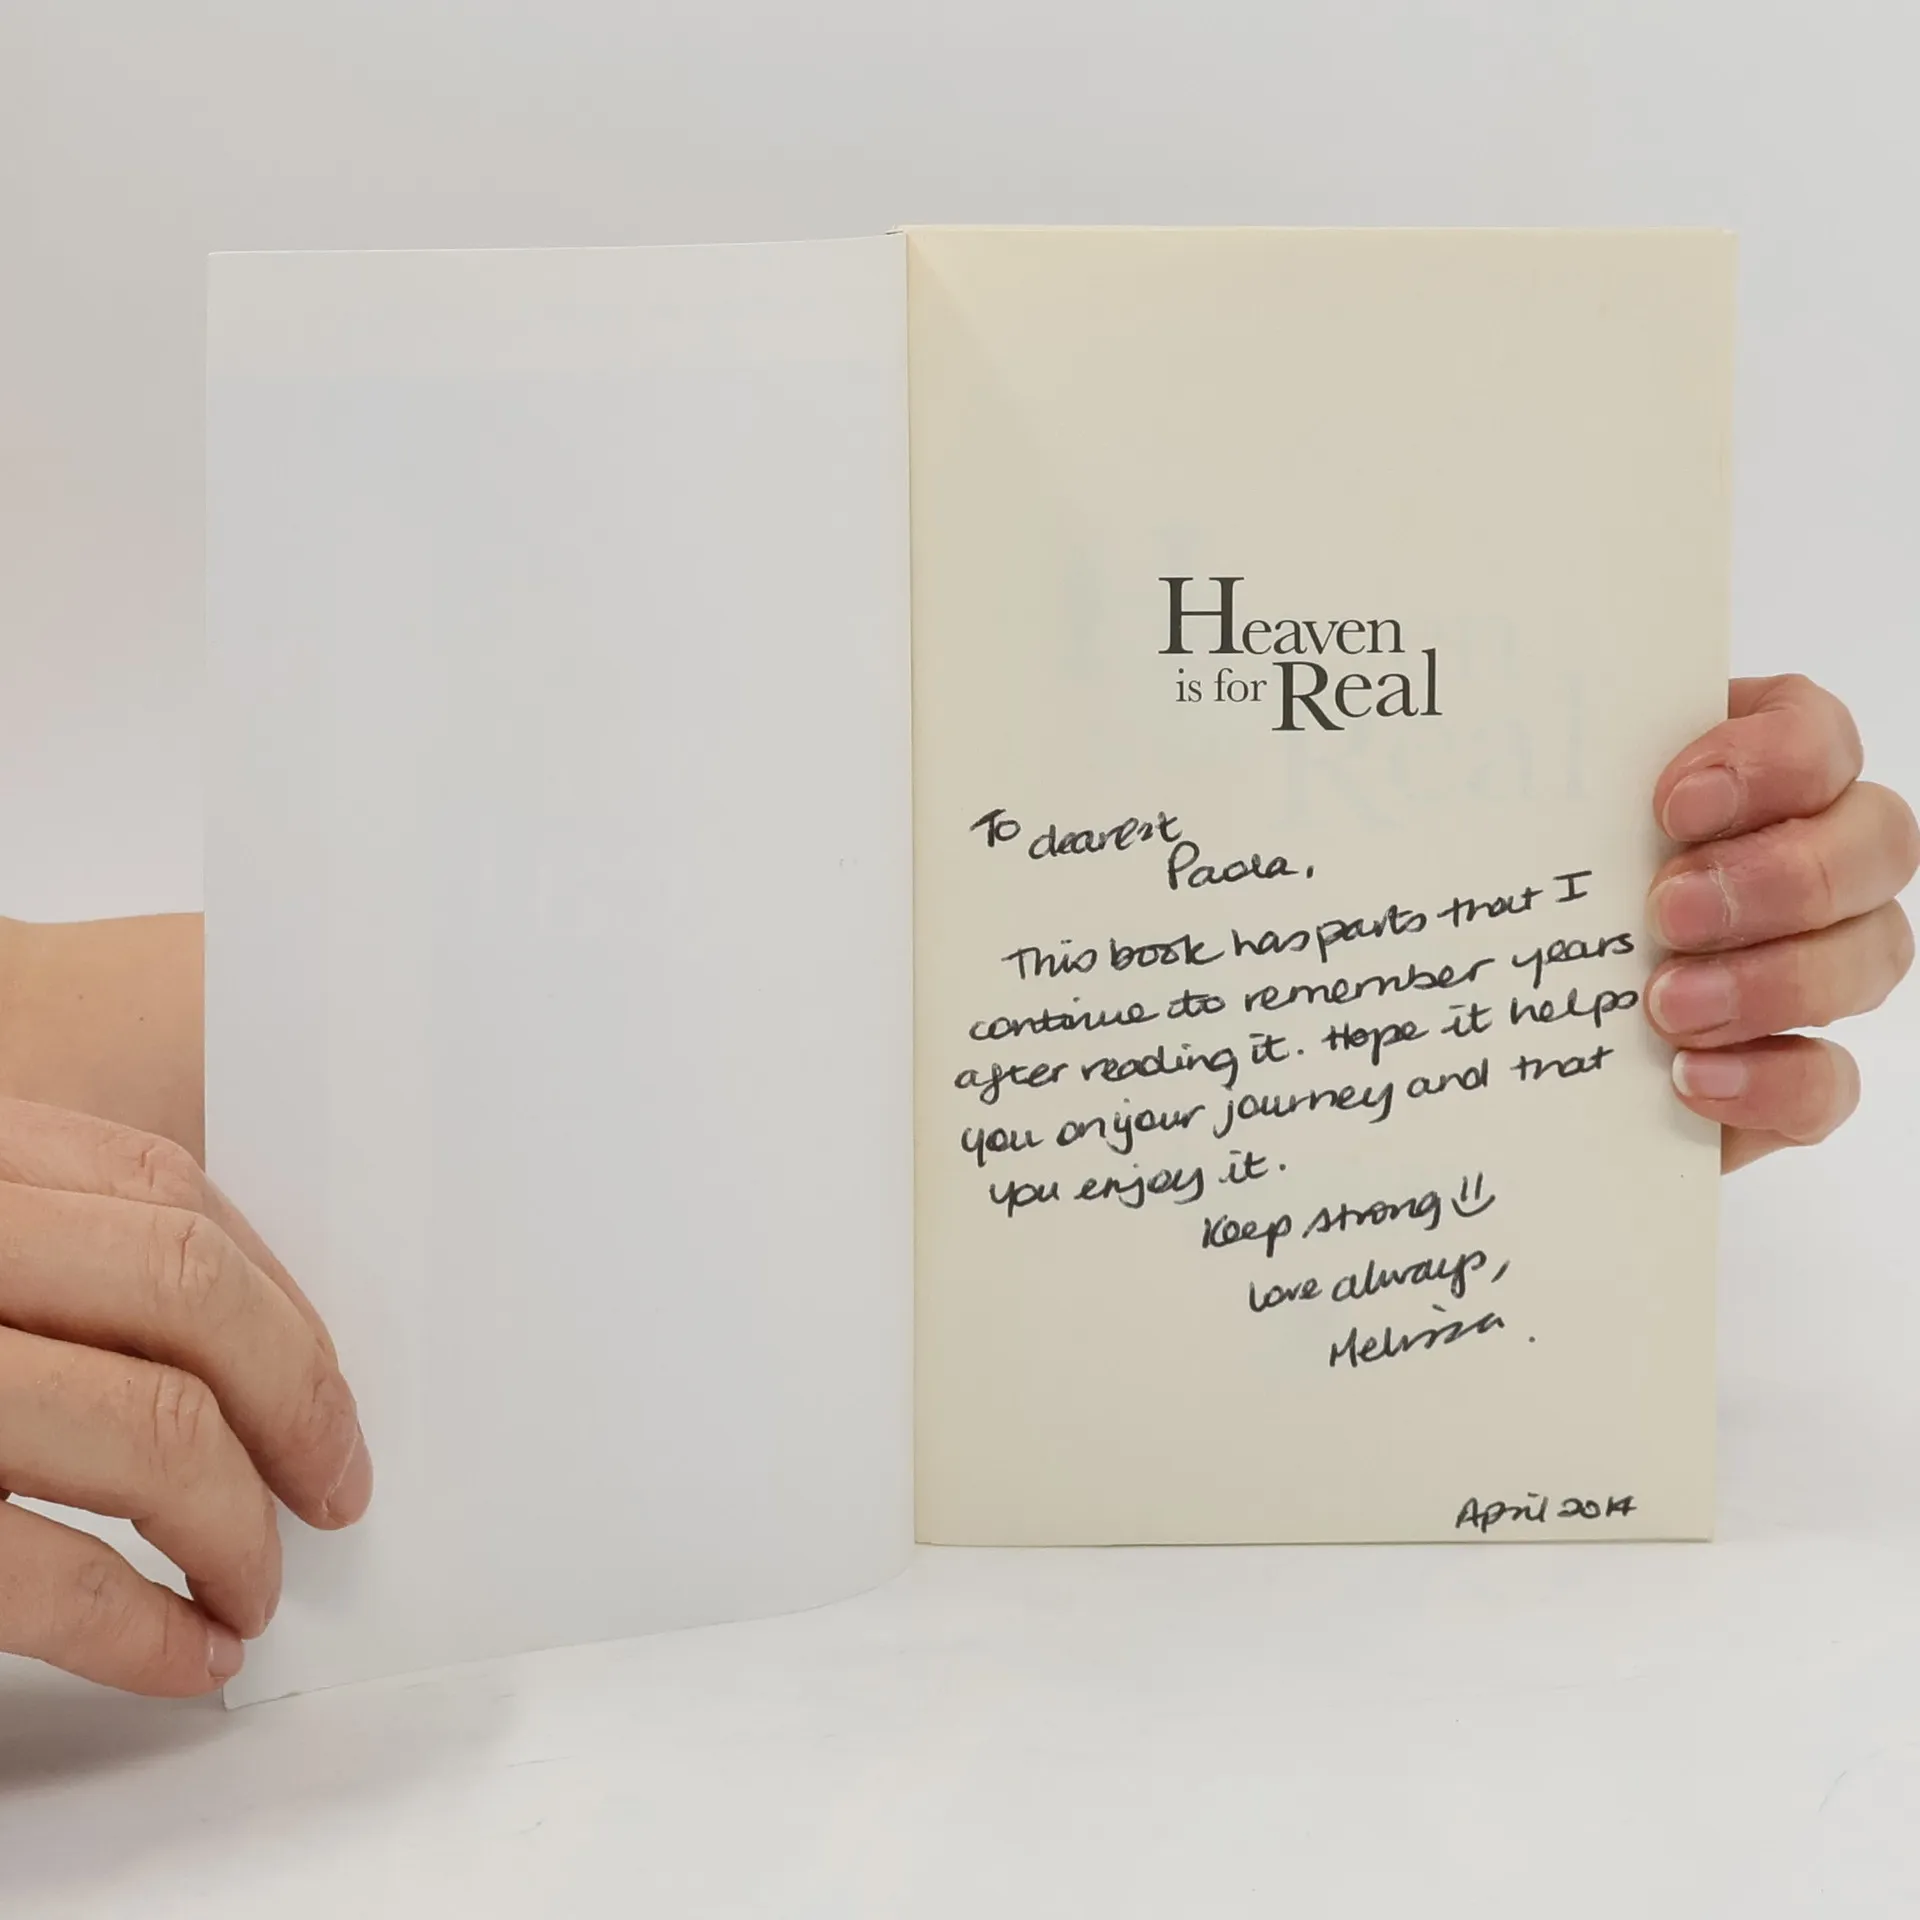 Heaven
is for Real
To dearest
Paola,
This book has parts that I
continue to remember years
after reading it. Hope it helps
you on your journey and that
you enjoy it.
Keep strong
Love always,
Melissa.
April 2014